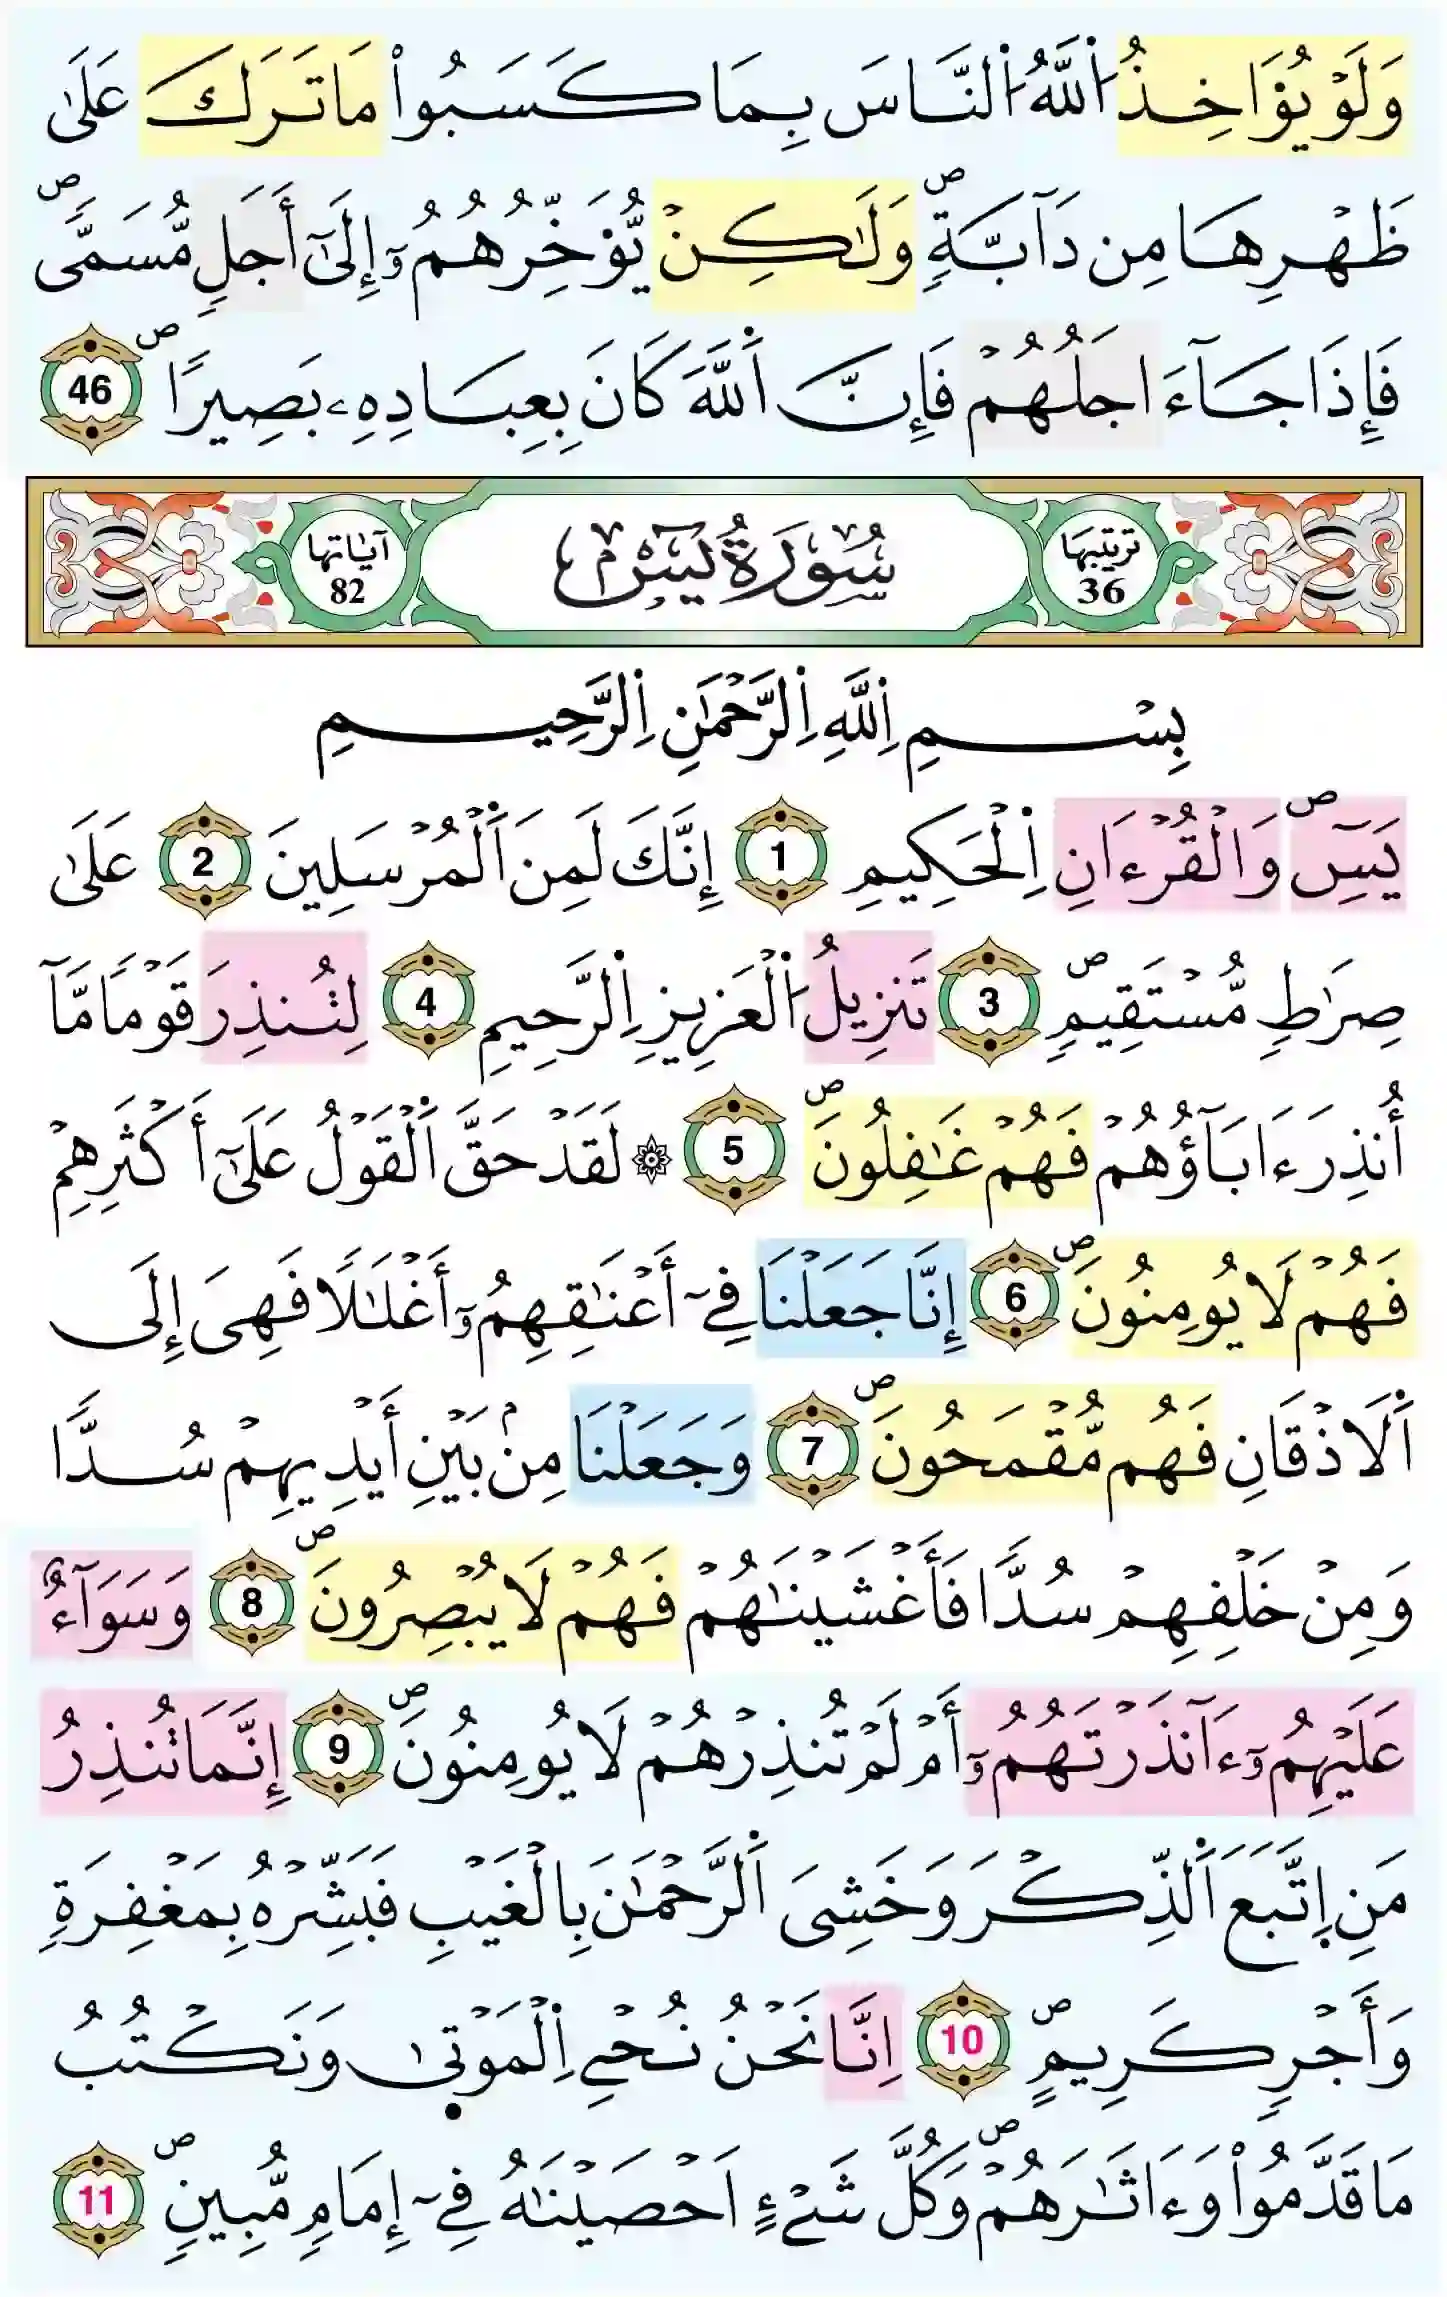 وَلَوْ يُؤَاخِذُ اُ۬للَّهُ اُ۬لنَّاسَ بِمَا كَسَبُواْ مَا تَرَكَ عَلَىٰ
ظَهْرِهَا مِن دَآبَّةٖۖ وَلَٰكِنْ يُّؤَخِّرُهُمُۥٓ إِلَىٰٓ أَجَلٖ مُّسَمّىٗۖ
فَإِذَا جَآءَ اجَلُهُمْ فَإِنَّ اَ۬للَّهَ كَانَ بِعِبَادِهِۦ بَصِيراٗۖ 46
ترتيبها 36 سُورَةُ يسٓ آياتها 82
بِسْمِ اِ۬للَّهِ اِ۬لرَّحْمَٰنِ اِ۬لرَّحِيمِ
يَسٓۖ وَالْقُرْءَانِ اِ۬لْحَكِيمِ 1 إِنَّكَ لَمِنَ اَ۬لْمُرْسَلِينَ 2 عَلَىٰ
صِرَٰطٖ مُّسْتَقِيمٖۖ 3 تَنزِيلُ اُ۬لْعَزِيزِ اِ۬لرَّحِيمِ 4 لِتُنذِرَ قَوْماٗ مَّآ
أُنذِرَ ءَابَآؤُهُمْ فَهُمْ غَٰفِلُونَۖ 5 ۞ لَقَدْ حَقَّ اَ۬لْقَوْلُ عَلَىٰٓ أَكْثَرِهِمْ
فَهُمْ لَا يُومِنُونَۖ 6 إِنَّا جَعَلْنَا فِےٓ أَعْنَٰقِهِمُۥٓ أَغْلَٰلاٗ فَهِىَ إِلَى
اَ۬لَاذْقَانِ فَهُم مُّقْمَحُونَۖ 7 وَجَعَلْنَا مِنۢ بَيْنِ أَيْدِيهِمْ سُدّاٗ
وَمِنْ خَلْفِهِمْ سُدّاٗ فَأَغْشَيْنَٰهُمْ فَهُمْ لَا يُبْصِرُونَۖ 8 وَسَوَآءٌ
عَلَيْهِمُۥٓ ءَآنذَرْتَهُمُۥٓ أَمْ لَمْ تُنذِرْهُمْ لَا يُومِنُونَۖ 9 إِنَّمَا تُنذِرُ
مَنِ اِ۪تَّبَعَ اَ۬لذِّكْرَ وَخَشِىَ اَ۬لرَّحْمَٰنَ بِالْغَيْبِ فَبَشِّرْهُ بِمَغْفِرَةٖ
وَأَجْرٖ كَرِيمٖۖ 10 اِنَّا نَحْنُ نُحْےِ اِ۬لْمَوْت۪ىٰ وَنَكْتُبُ
مَا قَدَّمُواْ وَءَاثَٰرَهُمْۖ وَكُلَّ شَےْءٍ اَحْصَيْنَٰهُ فِےٓ إِمَامٖ مُّبِينٖۖ 11